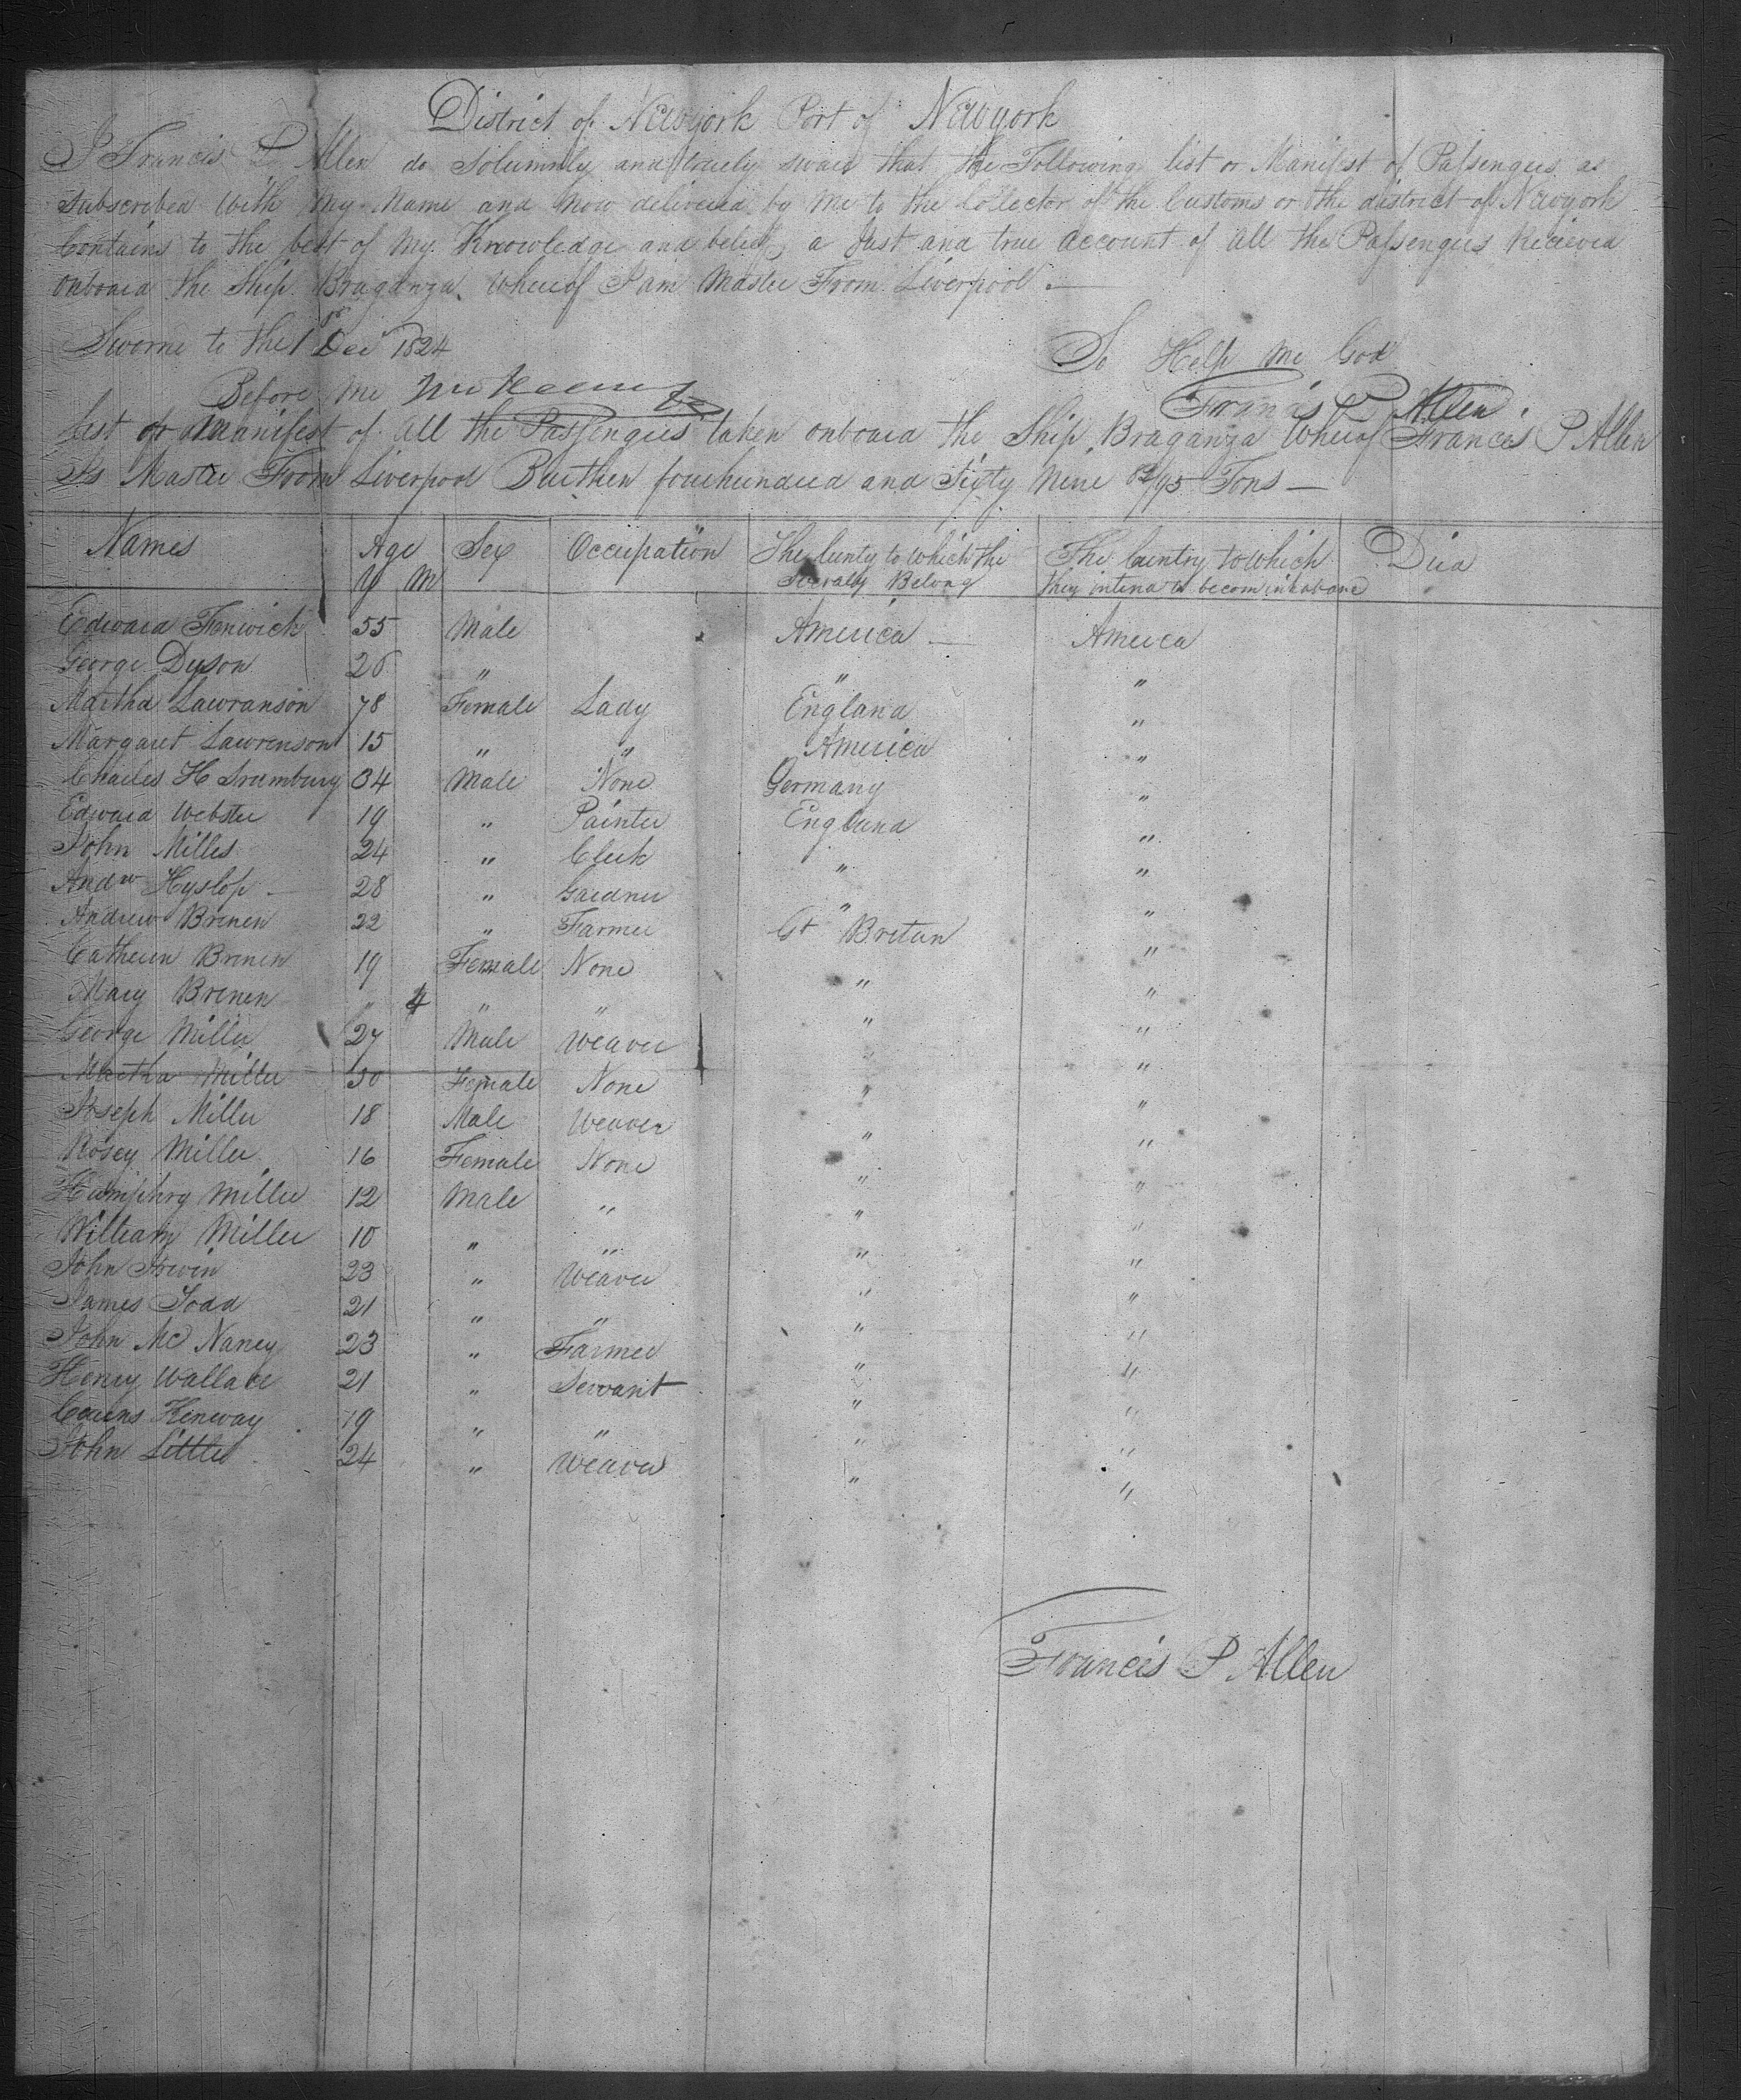 District of Newyork Port of Newyork
I Francis P Allen do Solumnly and truely swair that the Following list or Manifest of Passengers as
subscribed with my Name and now delivered by me to the Collector of the Customs or the district of Newyork
Contains to the best of my Knowledge and belief a just and true account of all the Passengers Recieved
onboard the Ship Braganza whereof I am Master From Liverpool
Sworne to the 1st Dec 1824
So Help me God
Before me
Francis P Allen
List or Manifest of all the Passengers taken onboard the Ship Braganza Whereof Francis P Allen
Is Master From Liverpool Burthen fourhundred and Sixty Nine /95 Tons
Names Age Sex Occupation The Cuntry to which the The Cuntry to which Died
Y M Severally Belong they intend to becom
Edward Fenwick 55 Male America America
George Dyson 26 " " "
Martha Lawranson 78 Female Lady England "
Margaret Lawrenson 15 " " America "
Charles H 34 Male None Germany "
Edward Webster 19 " Painter England "
John Milles 24 " Clerk " "
Andw Hyslop 28 " Gardner " "
Andrew Brenen 22 " Farmer Gt Bretan "
Catheren Brenen 19 Female None " "
Mary Brenen " 4 " " " "
George Miller 27 Male Weaver " "
Martha Miller 30 Female None " "
Joseph Miller 18 Male Weaver " "
Rosey Miller 16 Female None " "
Humphry Miller 12 Male " " "
William Miller 10 " " " "
John Irwin 23 " Weaver " "
James Todd 21 " " " "
John Mc Naney 23 " Farmer " "
Henry Wallace 21 " Servant " "
Cearns Kenway 19 " " " "
John Little 24 " Weaver " "
Francis P Allen